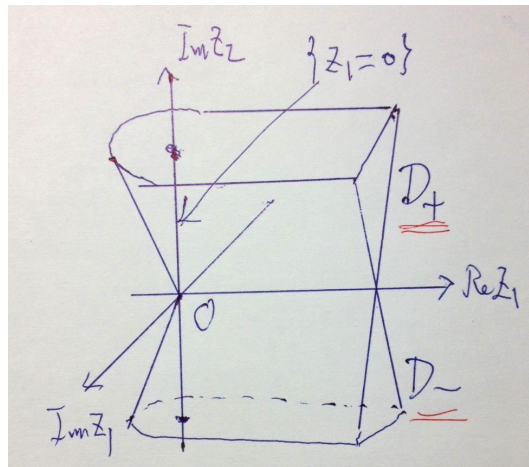 Im Z₂
{Z₁=0}
D₊
Re Z₁
O
D₋
Im Z₁